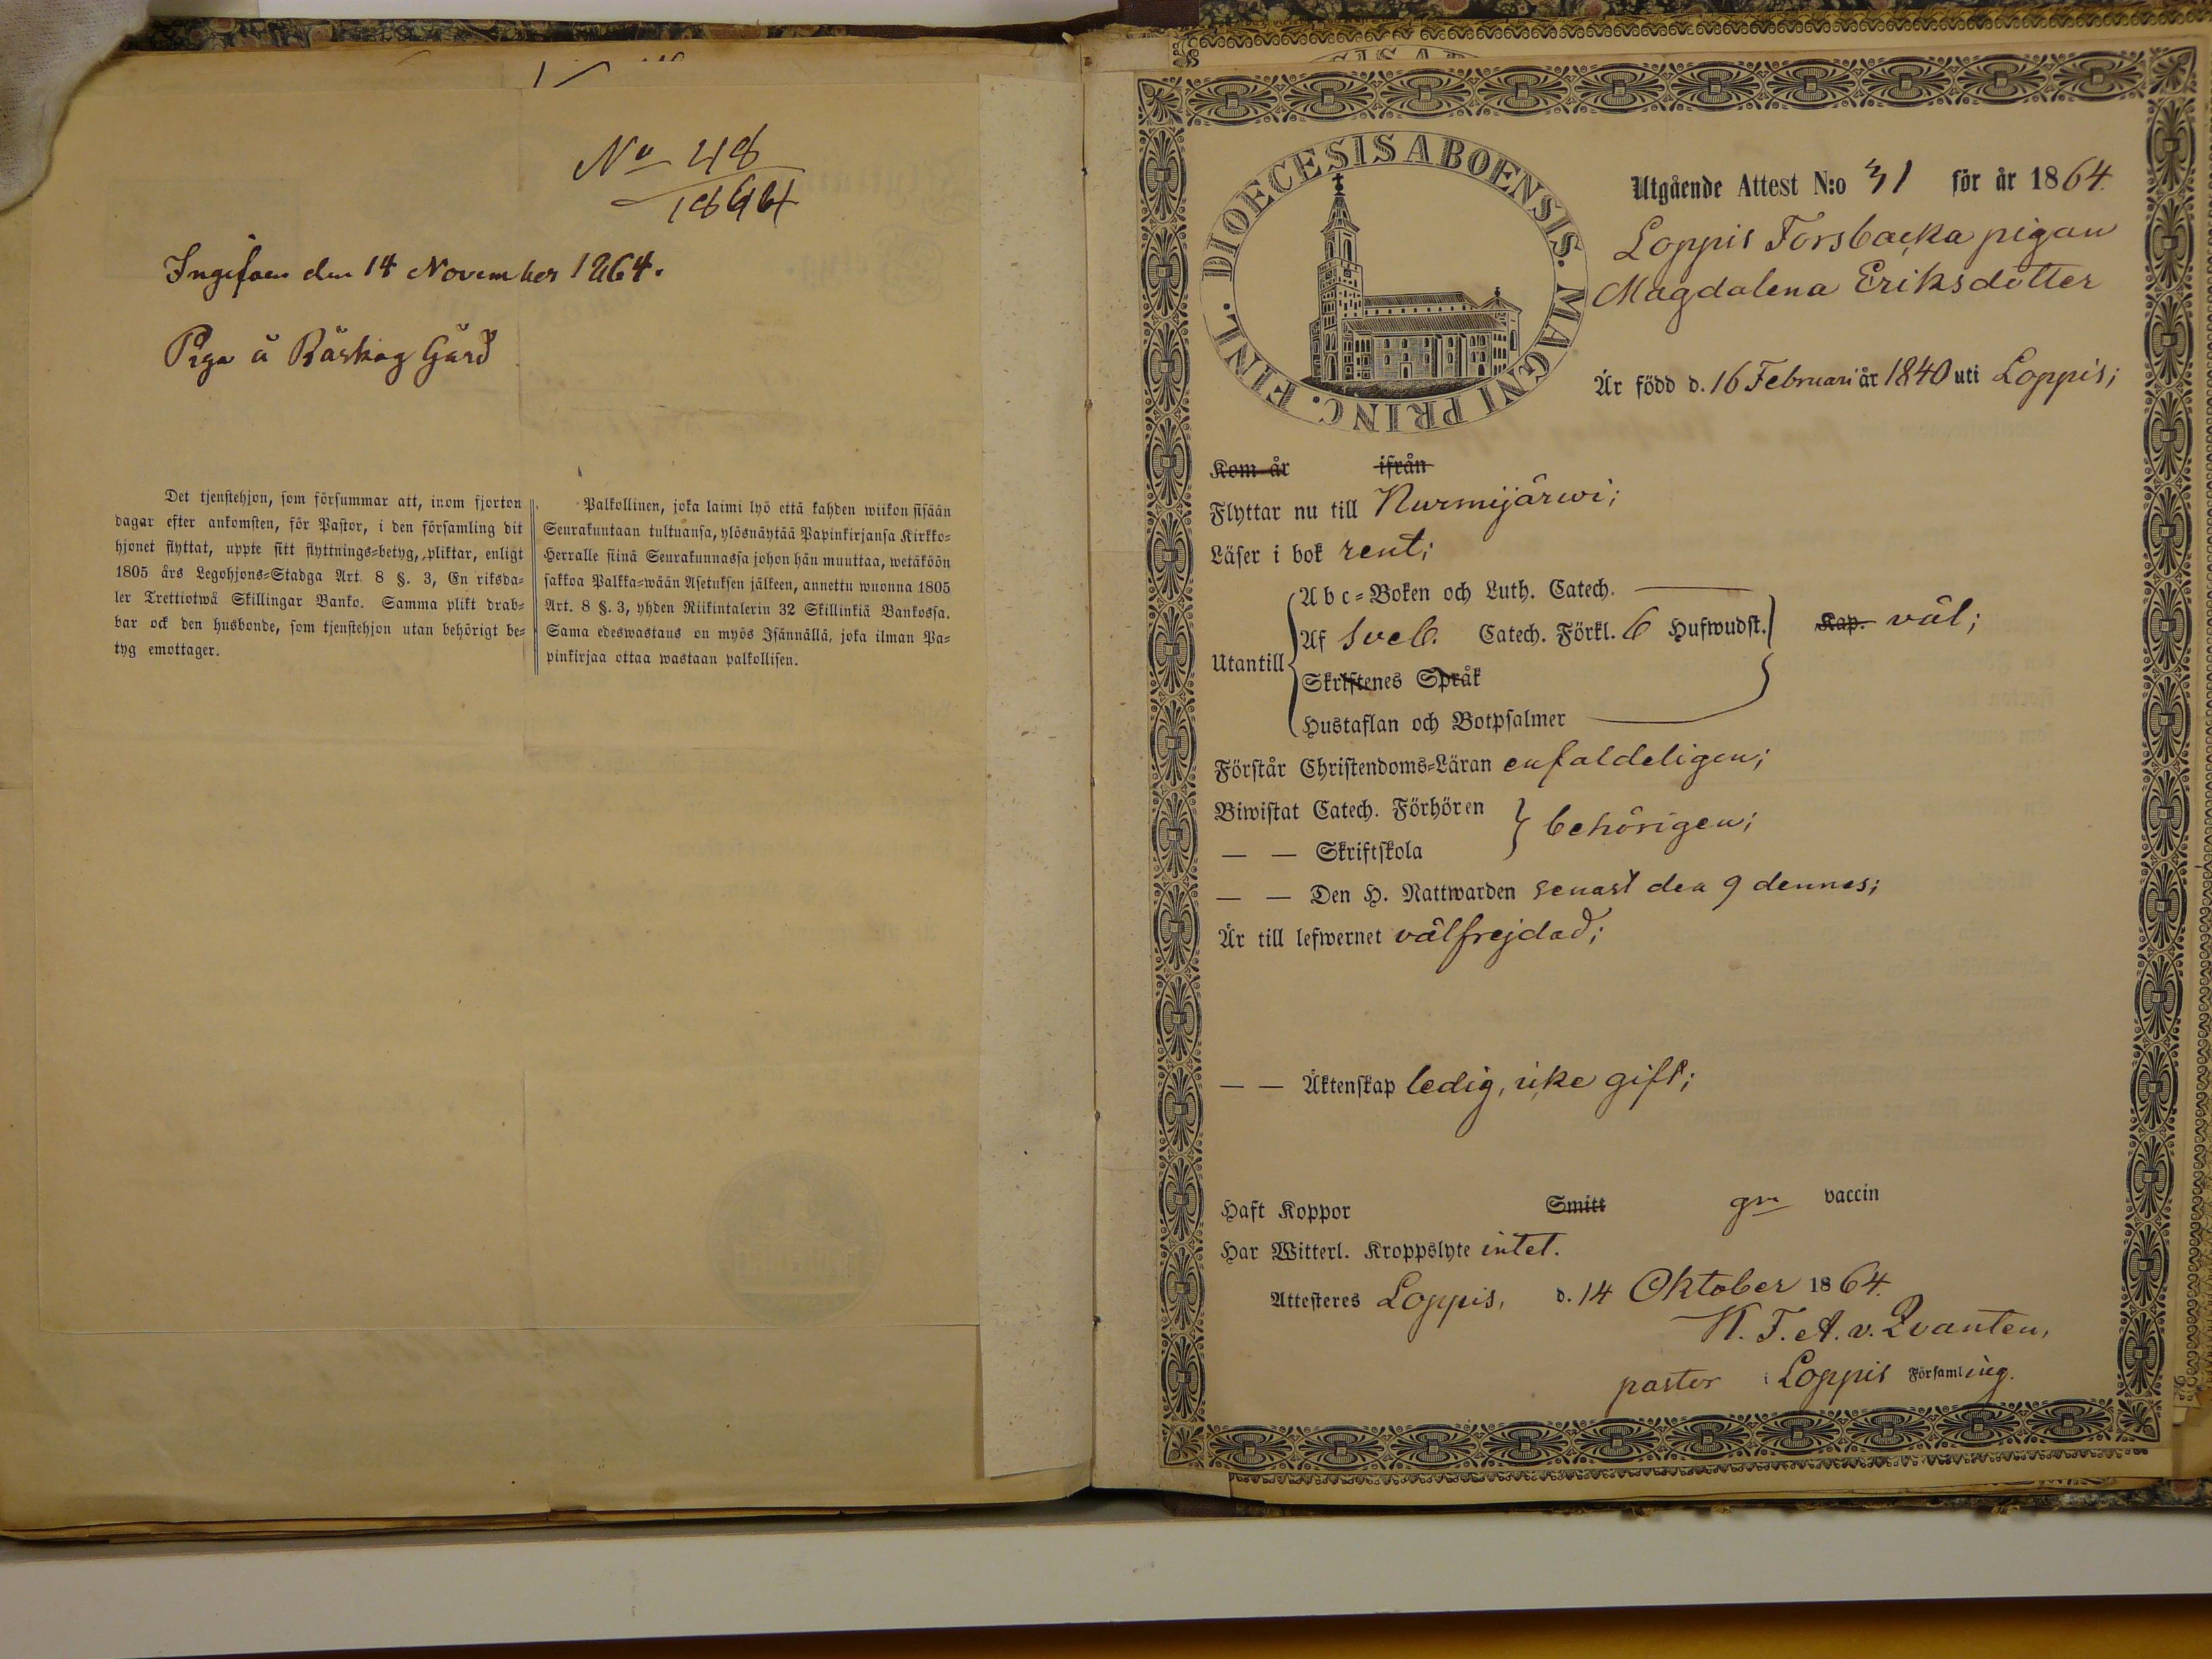 No 48
1864
Ingifven den 14 November 1864.
Piga å Råskog Gård
Det tjenstehjon, som försummar att, inom fjorton
dagar efter ankomsten, för Pastor, i den församling dit
hjonet flyttat, uppte sitt flyttnings=betyg, pliktar, enligt
1805 års Legohjons=Stadga Art. 8 §. 3, En riksda=
ler Trettiotwå Skillingar Banko. Samma plikt drab=
bar ock den husbonde, som tjenstehjon utan behörigt be=
tyg emottager.
Palkollinen, joka laimi lyö että kahden wiikon sisään
Seurakuntaan tultuansa, ylösnäytää Papinkirjansa Kirkko=
Herralle siinä Seurakunnassa johon hän muuttaa, wetäköön
sakkoa Palkka=wään Asetuksen jälkeen, annettu wuonna 1805
Art. 8 §. 3, yhden Riikintalerin 32 Skillinkiä Bankossa.
Sama edeswastaus on myös Isännällä, joka ilman Pa=
pinkirjaa ottaa wastaan palkollisen.
DIOECESIS ABOENSIS. MAGNI PRINC. FINL.
Utgående Attest N:o 31 för år 1864.
Loppis Forsbacka pigan
Magdalena Eriksdotter
Är född d. 16 Februari år 1840 uti Loppis;
Kom år ifrån
Flyttar nu till Nurmijärwi;
Läser i bok rent;
Utantill
Abc=Boken och Luth. Catech.
Af Sveb. Catech. Förkl. 6 Hufwudst. Kap. väl;
Skriftenes Språk
Hustaflan och Botpsalmer
Förstår Christendoms=Läran enfaldeligen;
Biwistat Catech. Förhören
— — Skriftskola behörigen;
— — Den H. Nattwarden senast den 9 dennes;
Är till lefwernet välfrejdad;
— — Äktenskap ledig, icke gift;
Haft Koppor Smitt gm vaccin
Har Witterl. Kroppslyte intet.
Attesteres Loppis, d. 14 Oktober 1864.
K. F. A. v. Qvanten,
pastor i Loppis Församling.